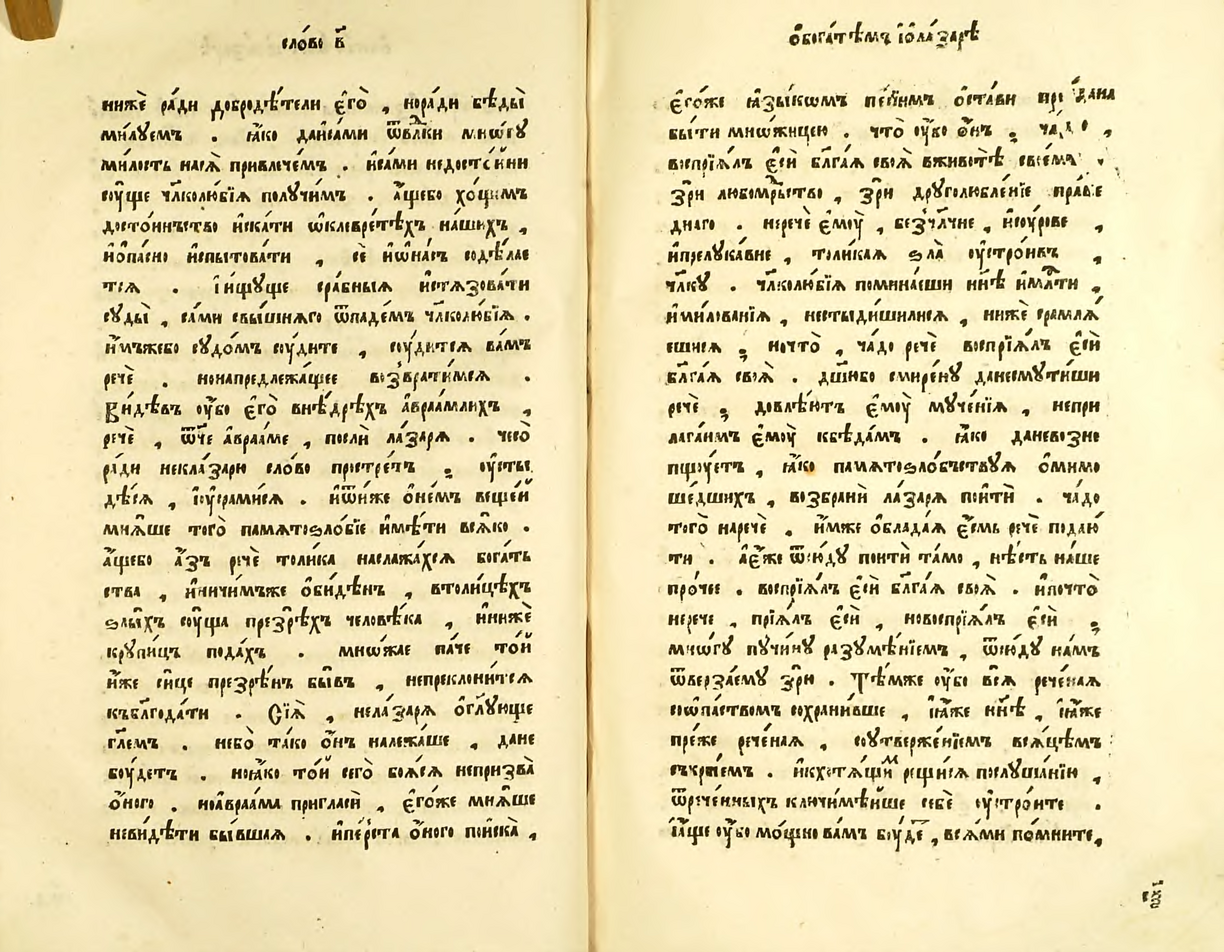 сло́во в҃
нижѐ ра́ди добродѣ́тели є҆гѡ̀ , но ра́ди бѣды̀
ми́лꙋемъ . ꙗ҆́ко да и҆ са́ми ѿ влⷣки мнѡ́гꙋ
милость на сѧ̀ привлече́мъ . и҆ са́ми недосто́йни
сꙋ́ще чл҃колю́бїѧ полꙋчи́мъ . а҆́ще бо хо́щемъ
досто́инъство и҆ска́ти ѡ҆ клевре́тѣхъ на́шихъ ,
и҆ ѻ҆па́сно и҆спытова́ти , сѐ и҆ ѡ҆ на́съ содѣ́лае
тсѧ . І҆ и҆́щꙋще сра́бныѧ и҆стѧзова́ти
сꙋды̀ , са́ми свы́шнѧго ѿпаде́мъ чл҃колю́бїѧ .
и҆́мъже бо сꙋдо́мъ сꙋ́дите , сꙋ́дитсѧ ва́мъ
речѐ . но на предлежа́щее возврати́мсѧ .
Ви́дѣвъ ᲂу҆̀бо є҆го̀ в нѣ́дрѣхъ а҆враа́млихъ ,
речѐ , ѿч҃е а҆враа́ме , послѝ ла́зарѧ . чесо̀
ра́ди не к ла́зарю сло́во простре́тъ ; ᲂу҆сты
дѣ́сѧ , і҆ ᲂу҆срами́сѧ . и҆ ѿ и҆́же ѻ҆ не́мъ веще́й
мнѧ́ше того̀ памѧтоѕло́бїе и҆мѣ́ти всѧ́ко .
а҆́ще бо а҆́зъ речѐ толи́ка наслажа́хсѧ бога́тъ
ства , и҆ ничи́мъже ѻ҆би́дѣнъ , в толи́цѣхъ
ѕлы́хъ сꙋ́ща презрѣ́хъ человѣ́ка , и҆ нижѐ
крꙋпи́цъ пода́хъ . мно́жае па́че то́й
и҆́же си́це презрѣ́нъ бы́въ , не преклони́тсѧ
къ бл҃года́ти . Сїѧ̀ , не ла́зарѧ ѻ҆гл҃ꙋ́юще
гл҃емъ . не бо̀ та́ко ѻ҆́нъ належа́ше , да не
бꙋ́детъ . но ꙗ҆́ко то́й сего̀ боѧ́сѧ не призва̀
ѻ҆́ного . но а҆враа́ма пригласѝ , є҆го́же мнѧ́ше
не ви́дѣти бы́вшаѧ . и҆ пе́рста ѻ҆́ного поиска̀ ,
ѻ҆ бога́тѣмъ і҆ ѻ҆ ла́зарѣ
є҆го́же ꙗ҆зы́комъ пе́сїимъ ѻ҆ста́ви
бы́ти мно́жицею . что̀ ᲂу҆̀бо ѻ҆́нъ ; ча́до ,
воспрїѧ́лъ є҆сѝ бл҃га́ѧ своѧ̀ в животѣ̀ свое́мъ .
зрѝ любомꙋ́дрьство , зрѝ дрꙋголюбле́нїе пра́ве
днаго . не речѐ є҆мꙋ̀ , безчл҃чне , и҆ сꙋ́рове ,
и҆ прелꙋка́вне , толи́каѧ ѕла̀ ᲂу҆стро́ивъ ,
чл҃кꙋ . чл҃колю́бїѧ помина́еши нн҃ѣ и҆ мл҃ти ,
и҆ милова́нїѧ , не стыди́ши ли сѧ , нижѐ срамлѧ́
ешисѧ ; но что̀ , ча́до речѐ воспрїѧ́лъ є҆сѝ
бл҃га́ѧ своѧ̀ . дш҃и бо смире́нꙋ да не смꙋти́ши
речѐ ; довлѣ́етъ є҆мꙋ̀ мꙋче́нїѧ , не при
лага́имъ є҆мꙋ̀ к бѣда́мъ . ꙗ҆́ко да не возне
пщꙋ́етъ , ꙗ҆́ко памѧтоѕло́бъствꙋѧ ѻ҆ мимо
ше́дшихъ , возбранѝ ла́зарѧ поитѝ . ча́до
того̀ наречѐ . и҆́мже ѻ҆блада́ѧ є҆́смь речѐ подаю́
ти . а҆ є҆́же ѿсю́дꙋ поитѝ та́мо , нѣ́сть на́ше
про́чее . воспрїѧ́лъ є҆сѝ бл҃га́ѧ своѧ̀ . и҆ почто̀
не рече , прїѧ́лъ є҆сѝ , но воспрїѧ́лъ є҆сѝ ;
мно́гꙋ пꙋчи́нꙋ разꙋмѣ́нїемъ , ѿсю́дꙋ на́мъ
ѿверза́емꙋ зрѝ . Тѣ́мже ᲂу҆̀бо всѧ̀ рече́наѧ
со ѻ҆па́ствомъ сохрани́вше , і҆ ꙗ҆́же нн҃ѣ , і҆ ꙗ҆́же
пре́же рече́наѧ , со ᲂу҆твержє́нїемъ всѧ́цѣмъ
съкры́емъ . и҆ к хотѧ́щимъ рещи́сѧ послꙋша́нїю ,
ѿ рече́нныхъ ключи́мѣйше себѐ ᲂу҆стро́ите .
і҆ а҆́ще ᲂу҆̀бо мо́щно ва́мъ бꙋ́де , всѧ̀ ми помни́те ,